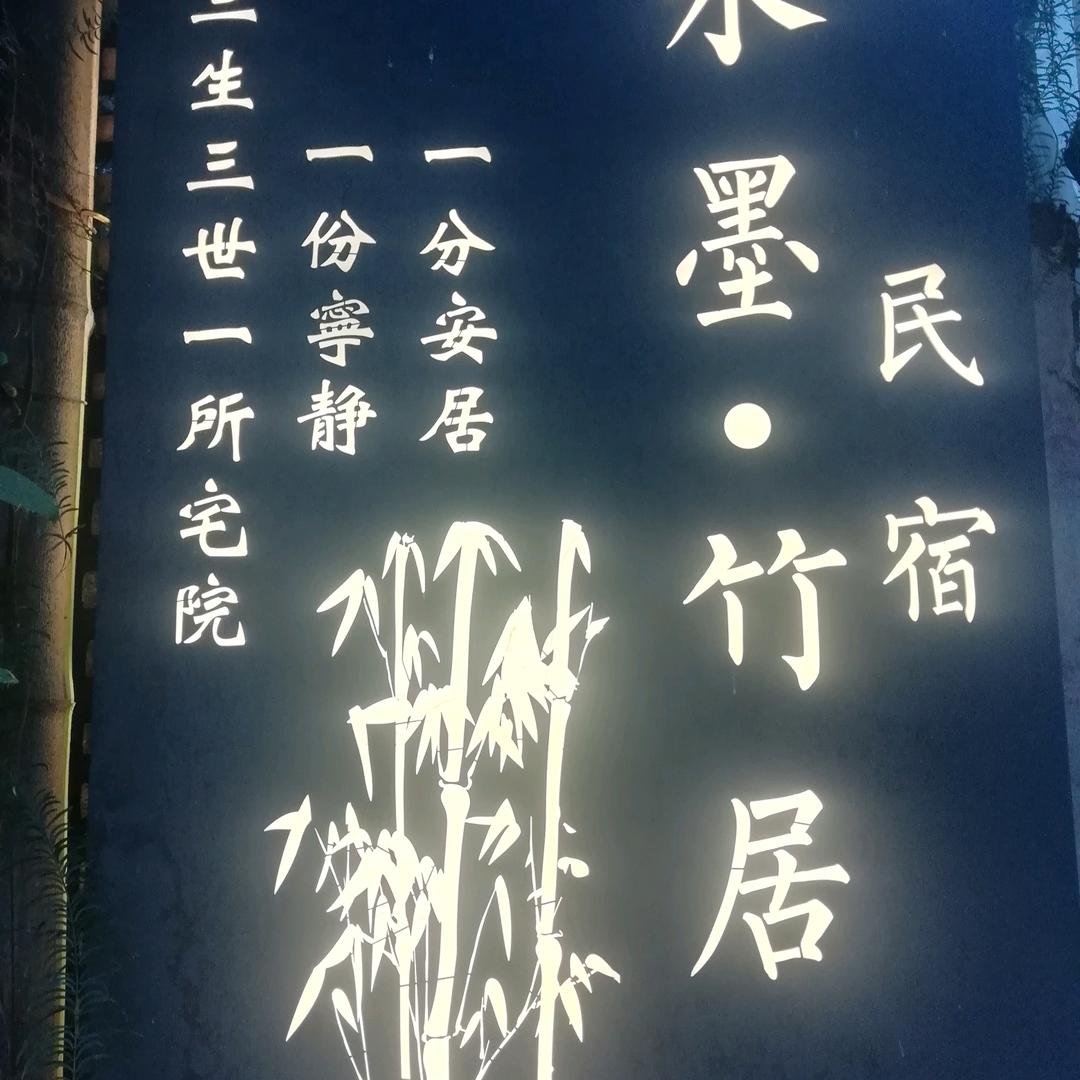 民宿
水墨·竹居
一分安居
一份寧静
三生三世一所宅院